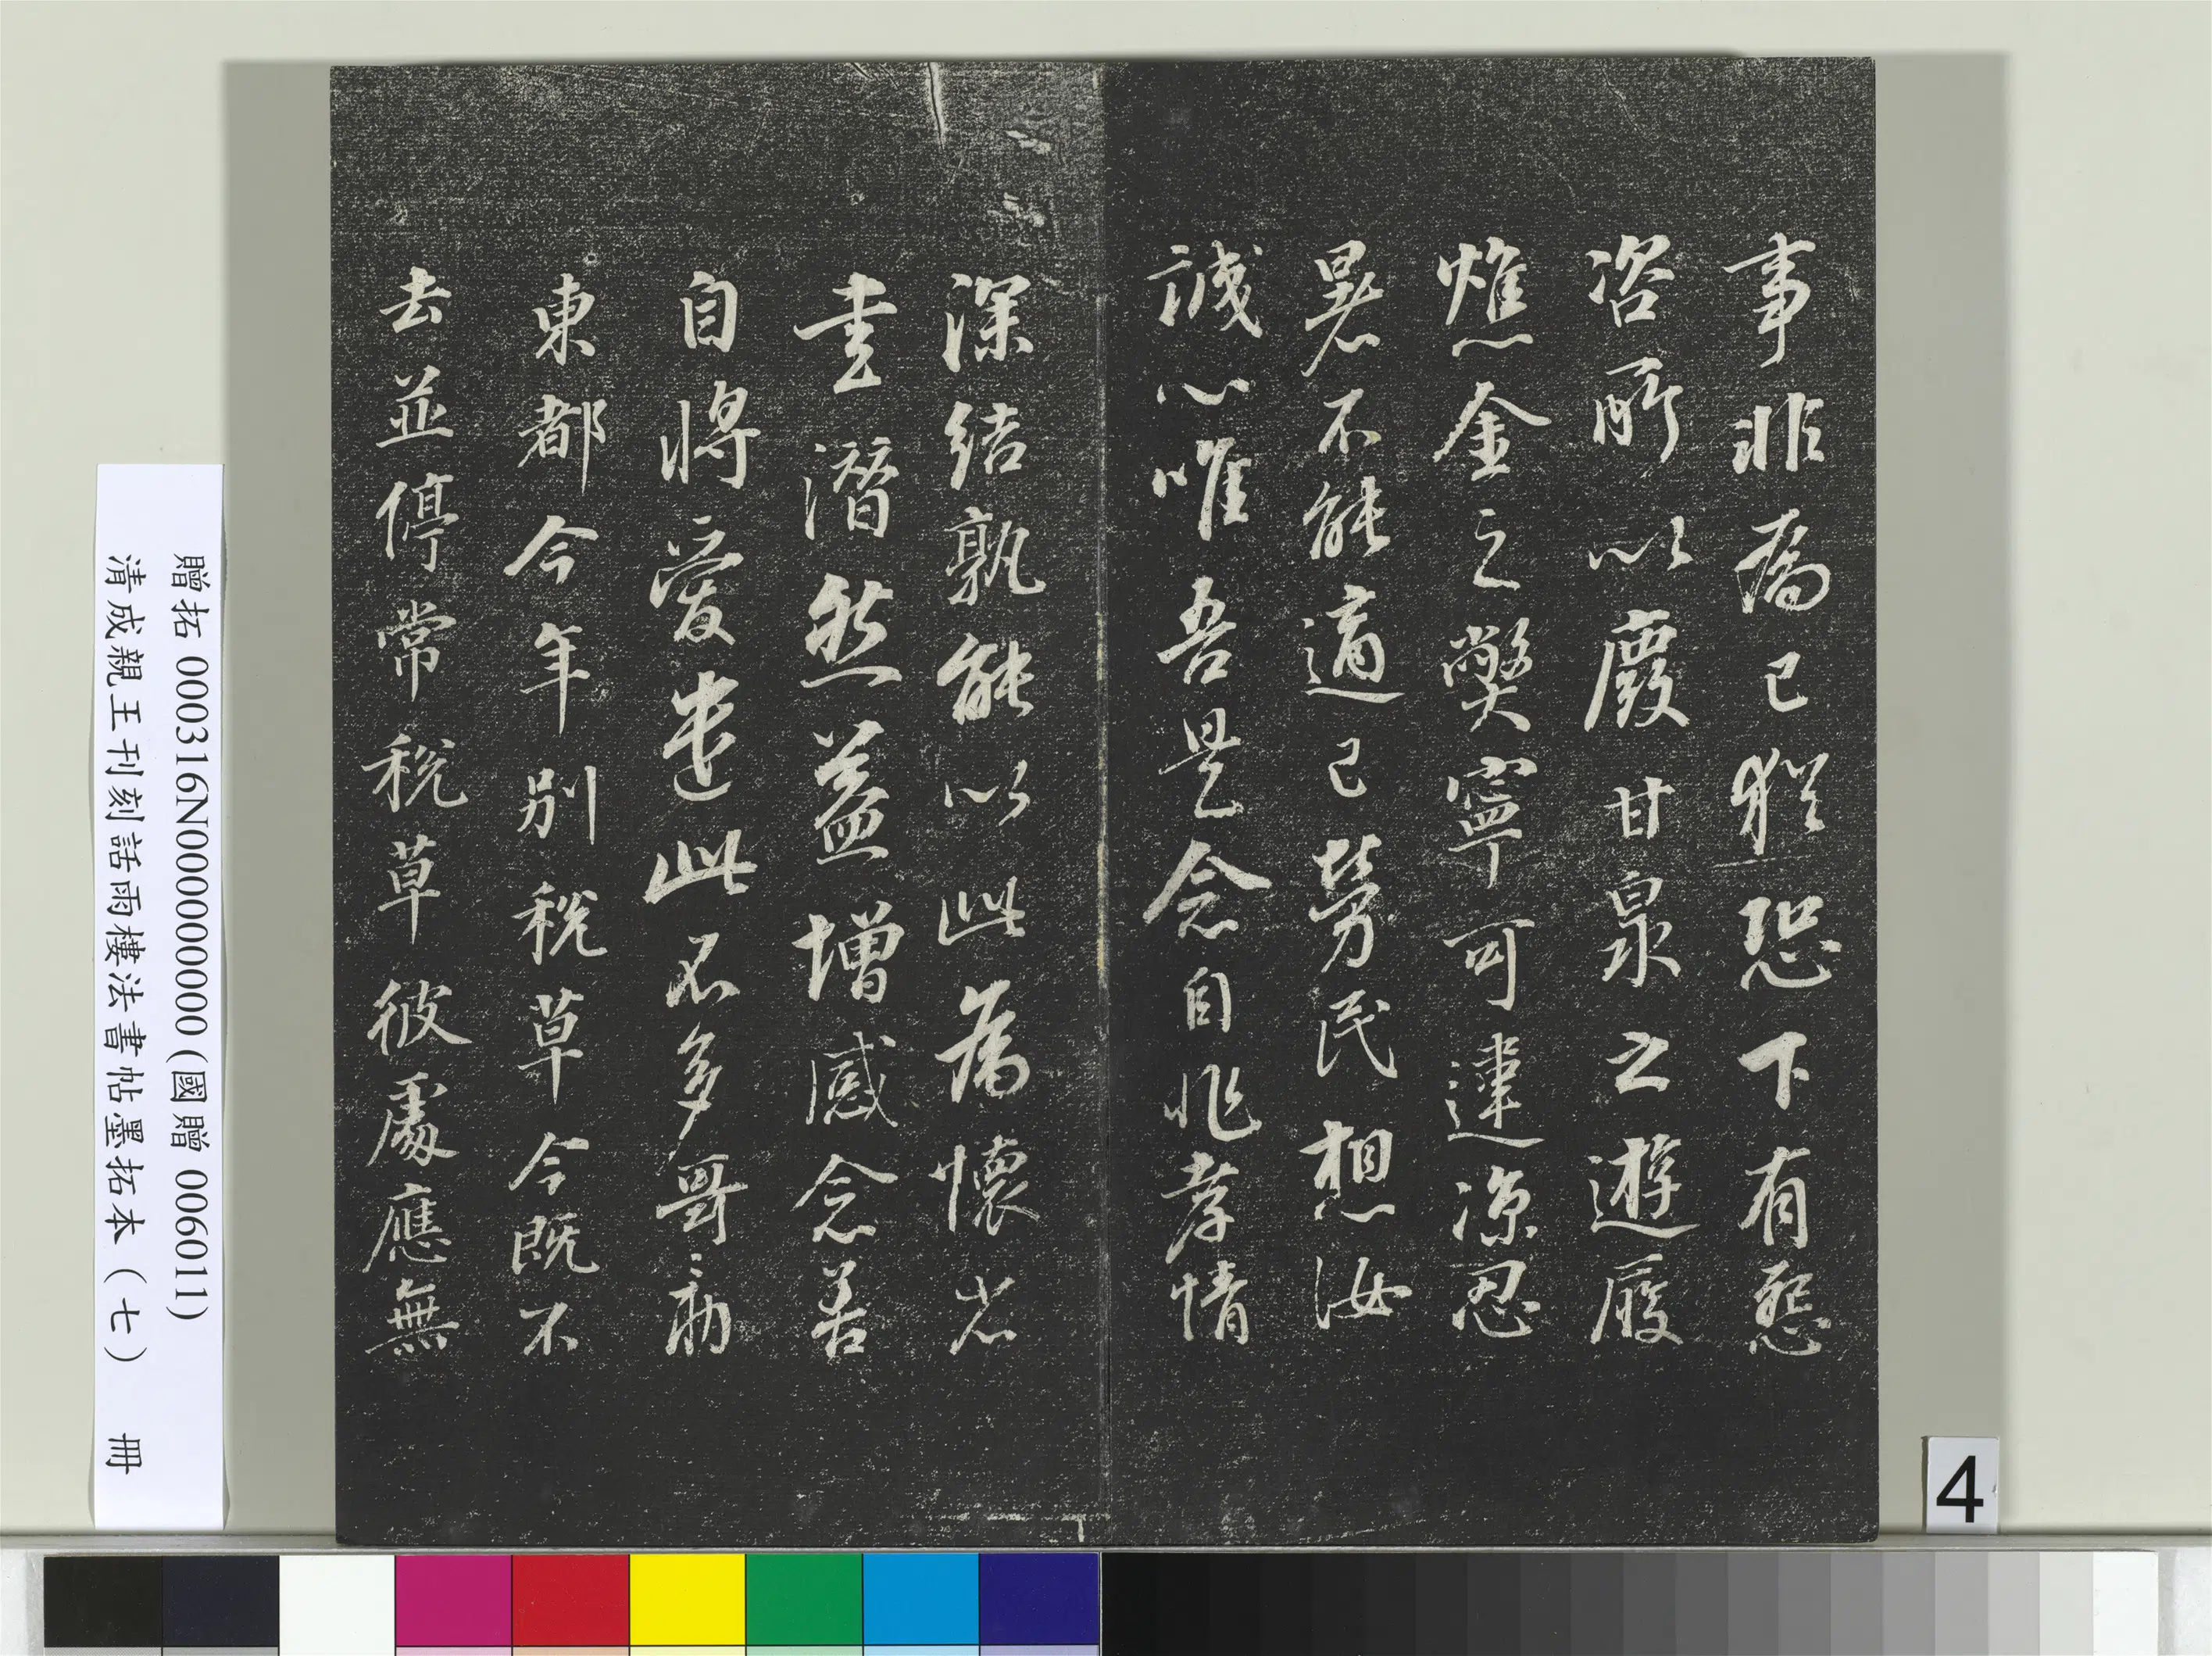 事非為己猶恐下有怨
咨所以廢甘泉之遊履
燋金之弊寧可違涼忍
暑不能適己勞民想汝
誠心唯吾是念自非孝情
深結孰能以此為懷省
書潛然益增感念善
自將愛遣此不多哥哥勑
東都今年別稅草今既不
去並停常稅草彼處應無
贈拓 000316N000000000 (國贈 006011)
清成親王刊刻詒雨樓法書帖墨拓本（七） 冊
4